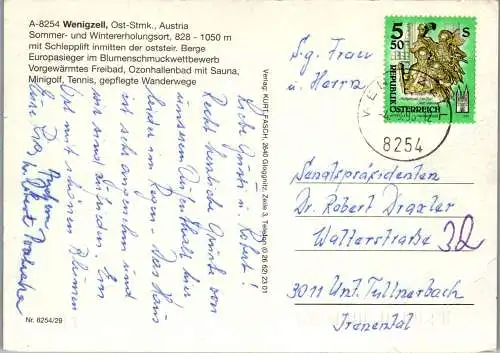 A-8254 Wenigzell, Ost-Stmk., Austria
Sommer- und Wintererholungsort, 828 - 1050 m
mit Schlepplift inmitten der oststeir. Berge
Europasieger im Blumenschmuckwettbewerb
Vorgewärmtes Freibad, Ozonhallenbad mit Sauna,
Minigolf, Tennis, gepflegte Wanderwege
Liebe Gusti u. Robert!
Recht herzliche Grüße von
unserem Aufenthalt hier
leider im Regen - Das Haus
ist sehr angenehm und
wir sind zufrieden. Ein
Ort mit schönen Blumen
Nr. 8254/29
Verlag: KURT FASCH, 2640 Gloggnitz, Zeile 3, Telefon (0 26 62) 23 01
5 50 S
REPUBLIK
ÖSTERREICH
8254
Sg. Frau
u. Herrn
Senatspräsidenten
Dr. Robert Draxler
Walterstraße 32
3011 Unt. Tullnerbach
Irenental